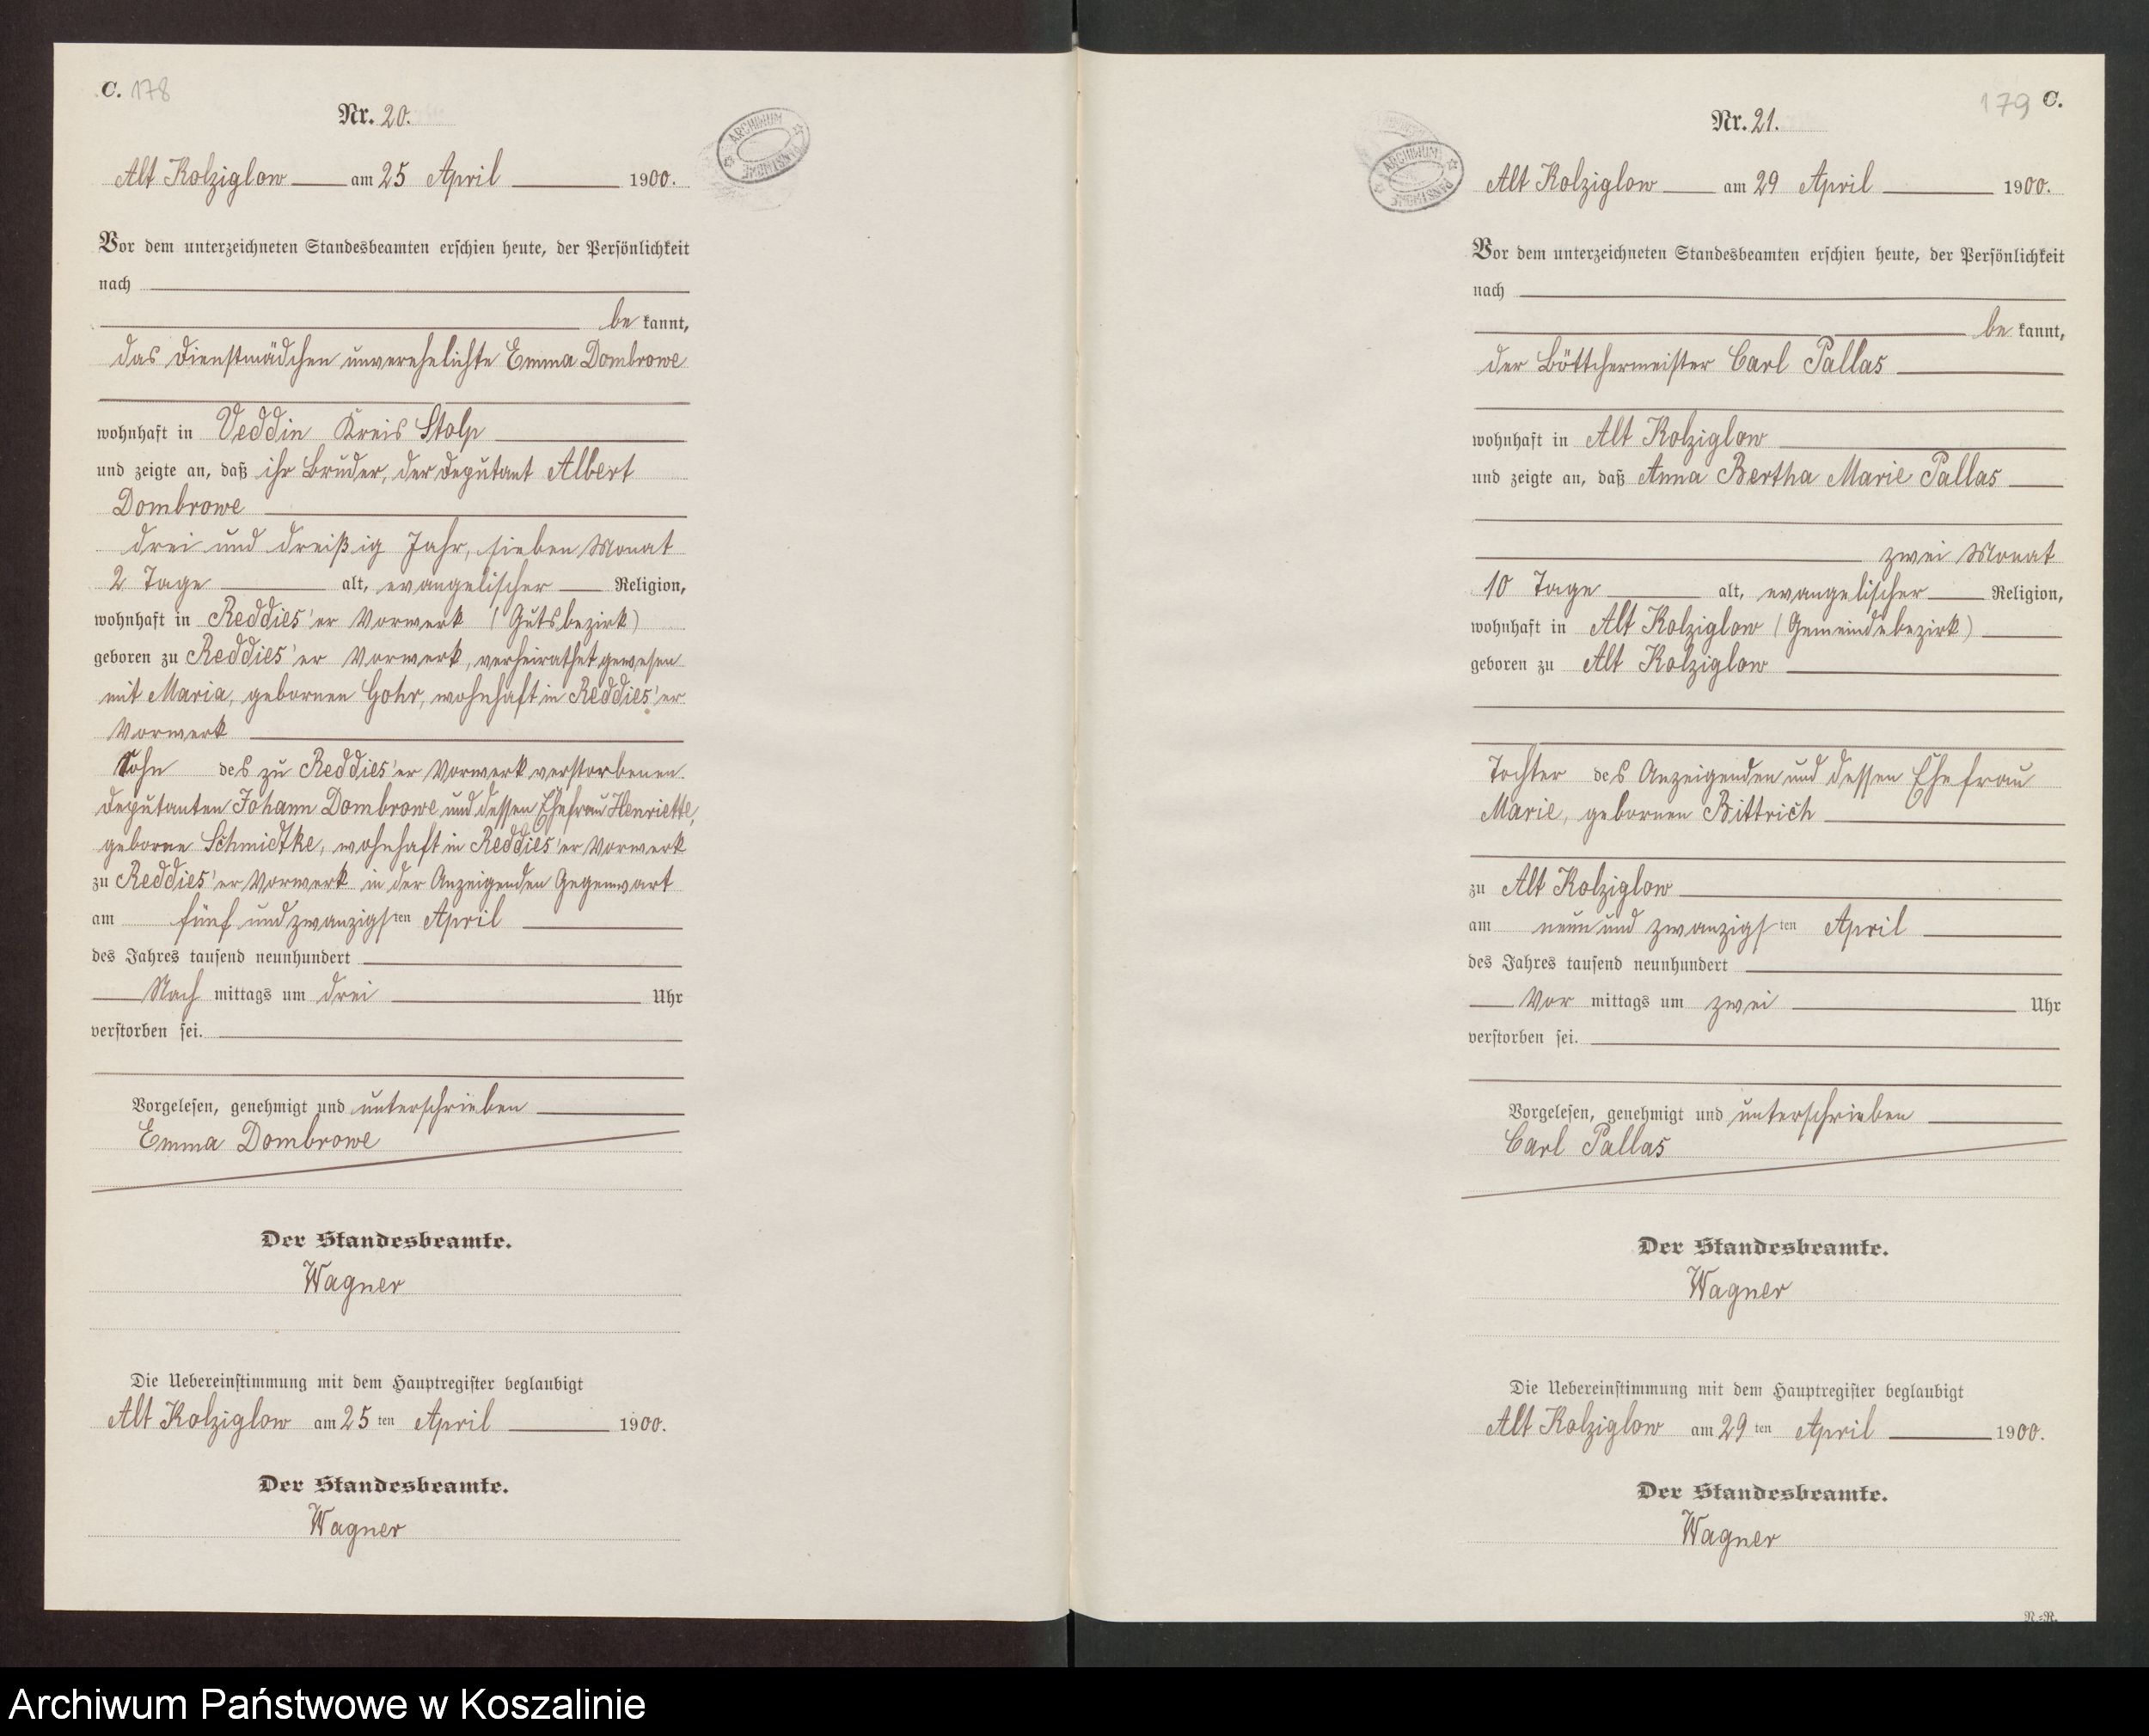 C. 178
Nr. 20.
ARCHIWUM PAŃSTWOWE
Alt Kolziglow am 25 April 1900.
Vor dem unterzeichneten Standesbeamten erschien heute, der Persönlichkeit
nach
be kannt,
das Dienstmädchen unverehelichte Emma Dombrowe
wohnhaft in Veddin Kreis Stolp
und zeigte an, daß ihr Bruder, der Deputant Albert
Dombrowe
drei und dreißig Jahr, sieben Monat
2 Tage alt, evangelischer Religion,
wohnhaft in Reddies'er Vorwerk (Gutsbezirk)
geboren zu Reddies'er Vorwerk, verheirathet gewesen
mit Maria, gebornen Gohr, wohnhaft in Reddies'er
Vorwerk
Sohn des zu Reddies'er Vorwerk verstorbenen
Deputanten Johann Dombrowe und dessen Ehefrau Henriette,
geborne Schmidtke, wohnhaft in Reddies'er Vorwerk
zu Reddies'er Vorwerk in der Anzeigenden Gegenwart
am fünf und zwanzigsten April
des Jahres tausend neunhundert
Nach mittags um drei Uhr
verstorben sei.
Vorgelesen, genehmigt und unterschrieben
Emma Dombrowe
Der Standesbeamte.
Wagner
Die Uebereinstimmung mit dem Hauptregister beglaubigt
Alt Kolziglow am 25 ten April 1900.
Der Standesbeamte.
Wagner
179 C.
Nr. 21.
ARCHIWUM PAŃSTWOWE
Alt Kolziglow am 29 April 1900.
Vor dem unterzeichneten Standesbeamten erschien heute, der Persönlichkeit
nach
be kannt,
der Böttchermeister Carl Pallas
wohnhaft in Alt Kolziglow
und zeigte an, daß Anna Bertha Marie Pallas
zwei Monat
10 Tage alt, evangelischer Religion,
wohnhaft in Alt Kolziglow (Gemeindebezirk)
geboren zu Alt Kolziglow
Tochter des Anzeigenden und dessen Ehefrau
Marie, gebornen Bittrich
zu Alt Kolziglow
am neun und zwanzigsten April
des Jahres tausend neunhundert
Vor mittags um zwei Uhr
verstorben sei.
Vorgelesen, genehmigt und unterschrieben
Carl Pallas
Der Standesbeamte.
Wagner
Die Uebereinstimmung mit dem Hauptregister beglaubigt
Alt Kolziglow am 29 ten April 1900.
Der Standesbeamte.
Wagner
N.=R.
Archiwum Państwowe w Koszalinie